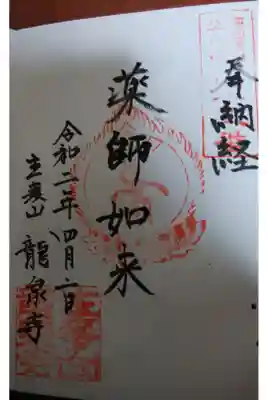 奉納経
薬師如来
令和二年四月二日
龍泉寺